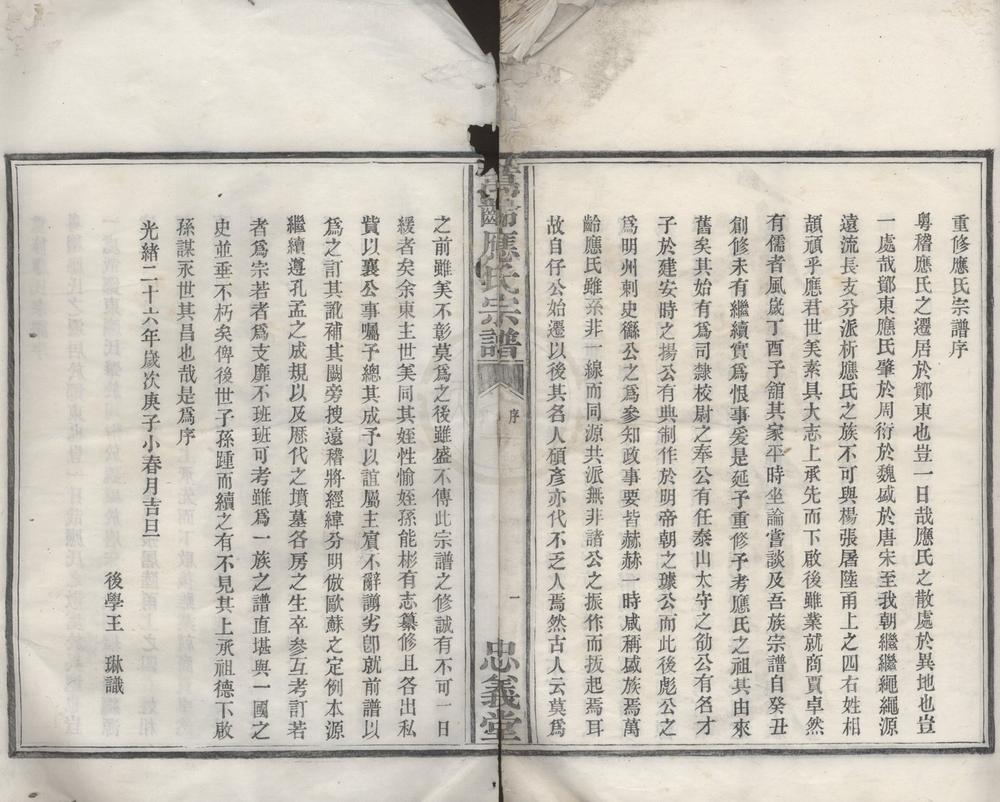 重修應氏宗譜序
粤稽應氏之遷居於鄞東也豈一日哉應氏之散處於異地也豈
一處哉鄞東應氏肇於周衍於魏盛於唐宋至我朝繼繼繩繩源
遠流長支分派析應氏之族不可與楊張屠陸甬上之四右姓相
頡頏乎應君世美素具大志上承先而下啟後雖業就商賈卓然
有儒者風歲丁酉予舘其家平時坐論嘗談及吾族宗譜自癸丑
創修未有繼續實爲恨事爰是延予重修予考應氏之祖其由來
舊矣其始有爲司隸校尉之奉公有任泰山太守之劭公有名才
子於建安時之揚公有典制作於明帝朝之璩公而此後彪公之
爲明州刺史㣲公之爲參知政事要皆赫赫一時咸稱盛族焉萬
齡應氏雖亲非一線而同源共派無非諸公之振作而扳起焉耳
故自仔公始遷以後其名人碩彥亦代不乏人焉然古人云莫爲
萬齡應氏宗譜
序
一
忠義堂
之前雖美不彰莫爲之後雖盛不傳此宗譜之修誠有不可一日
緩者矣余東主世美同其姪性愉姪孫能彬有志纂修且各出私
貲以襄公事囑予總其成予以誼屬主賓不辭謭劣卽就前譜以
爲之訂其訛補其闕旁搜遠稽將經緯分明倣歐蘇之定例本源
繼續遵孔孟之成規以及厯代之墳墓各房之生卒參互考訂若
者爲宗若者爲支靡不班班可考雖爲一族之譜直堪與一國之
史並垂不朽矣俾後世子孫踵而續之有不見其上承祖德下啟
孫謀永世其昌也哉是爲序
光緒二十六年歲次庚子小春月吉旦
後學王　琳識